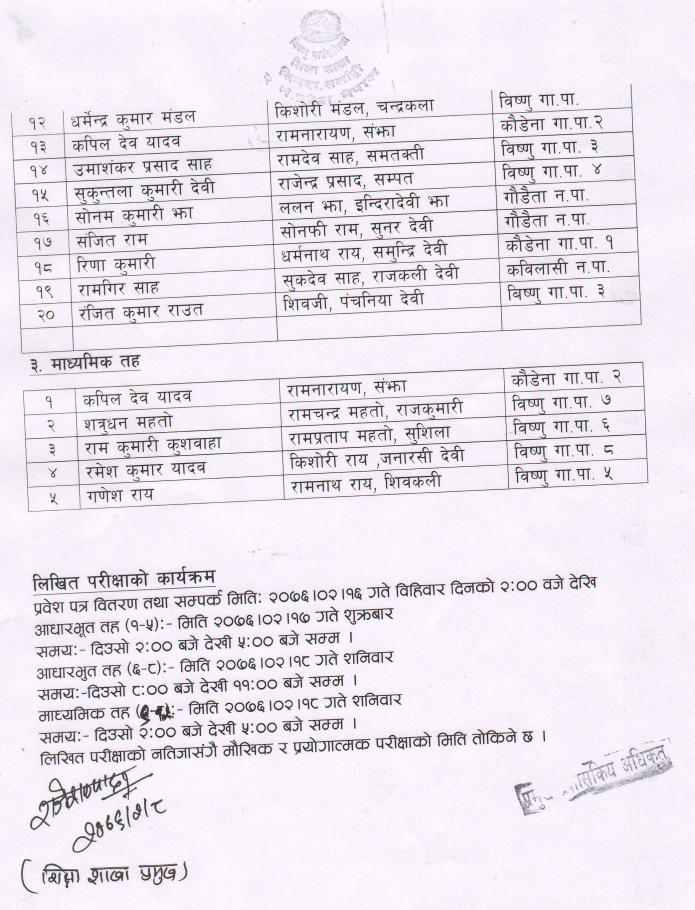 विष्णु गाउँपालिका
शिक्षा शाखा
१२ धर्मेन्द्र कुमार मंडल किशोरी मंडल, चन्द्रकला विष्णु गा.पा.
१३ कपिल देव यादव रामनारायण, संझा कौडेना गा.पा.२
१४ उमाशंकर प्रसाद साह रामदेव साह, समतक्ती विष्णु गा.पा. ३
१५ सुकुन्तला कुमारी देवी राजेन्द्र प्रसाद, सम्पत विष्णु गा.पा. ४
१६ सोनम कुमारी झा ललन झा, इन्दिरादेवी झा गौडैता न.पा.
१७ संजित राम सोनफी राम, सुनर देवी गौडैता न.पा.
१८ रिणा कुमारी धर्मनाथ राय, समुन्द्रि देवी कौडेना गा.पा. १
१९ रामगिर साह सुकदेव साह, राजकली देवी कविलासी न.पा.
२० रंजित कुमार राउत शिवजी, पंचनिया देवी बिष्णु गा.पा. ३
३. माध्यमिक तह
१ कपिल देव यादव रामनारायण, संझा कौडेना गा.पा. २
२ शत्रुधन महतो रामचन्द्र महतो, राजकुमारी विष्णु गा.पा. ७
३ राम कुमारी कुशवाहा रामप्रताप महतो, सुशिला विष्णु गा.पा. ६
४ रमेश कुमार यादव किशोरी राय ,जनारसी देवी विष्णु गा.पा. ८
५ गणेश राय रामनाथ राय, शिवकली विष्णु गा.पा. ५
लिखित परीक्षाको कार्यक्रम
प्रवेश पत्र वितरण तथा सम्पर्क मिति: २०७६।०२।१६ गते विहिवार दिनको २:०० वजे देखि
आधारभुत तह (१-५):- मिति २०७६।०२।१७ गते शुक्रबार
समय:- दिउसो २:०० बजे देखी ५:०० बजे सम्म ।
आधारभुत तह (६-८):- मिति २०७६।०२।१८ गते शनिवार
समय:-दिउसो ८:०० बजे देखी ११:०० बजे सम्म ।
माध्यमिक तह :- मिति २०७६।०२।१८ गते शनिवार
समय:- दिउसो २:०० बजे देखी ५:०० बजे सम्म ।
लिखित परीक्षाको नतिजासंगै मौखिक र प्रयोगात्मक परीक्षाको मिति तोकिने छ ।
२०७६/२/८
(शिक्षा शाखा प्रमुख)
अधिकृत